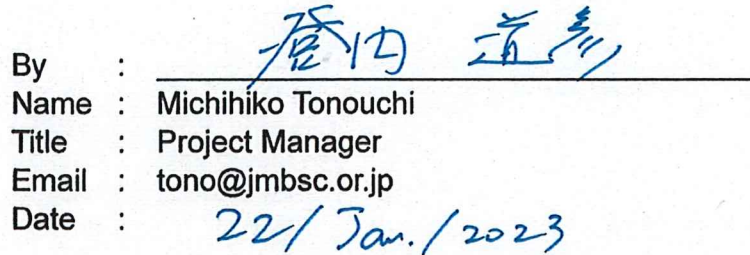 By : 登内 道彦
Name : Michihiko Tonouchi
Title : Project Manager
Email : tono@jmbsc.or.jp
Date : 22/Jan./2023